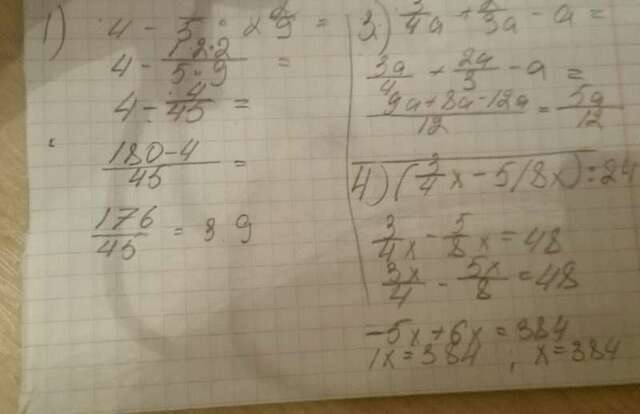 1) 4 - 1/5 · 2 2/9 =
4 - 1·2·2/5·9 =
4 - 4/45 =
180-4/45 =
176/45 = 3.9
3) 3/4a + 2/3a - a =
3a/4 + 2a/3 - a =
9a+8a-12a/12 = 5a/12
4) (3/4x - 5/8x) : 24
3/4x - 5/8x = 48
3x/4 - 5x/8 = 48
-5x+6x = 384
1x = 384 , x = 384